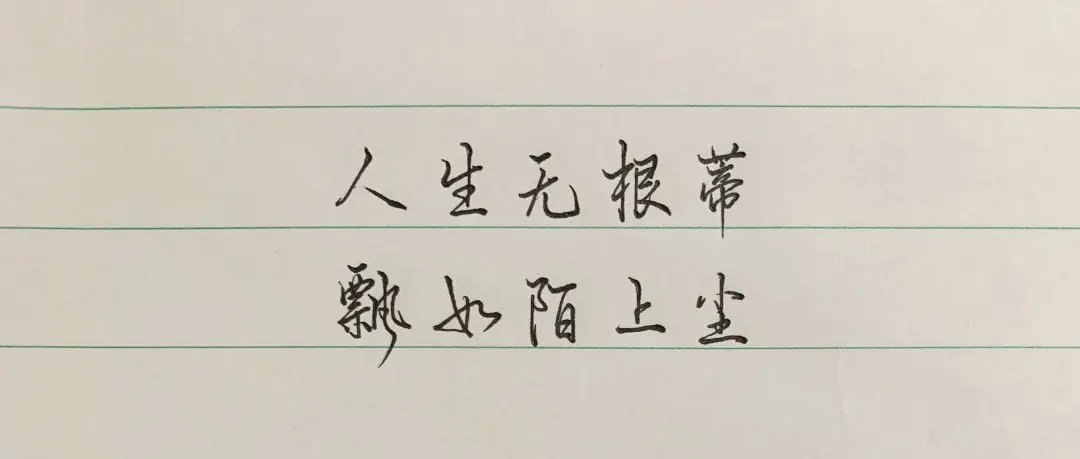 人生无根蒂
飘如陌上尘